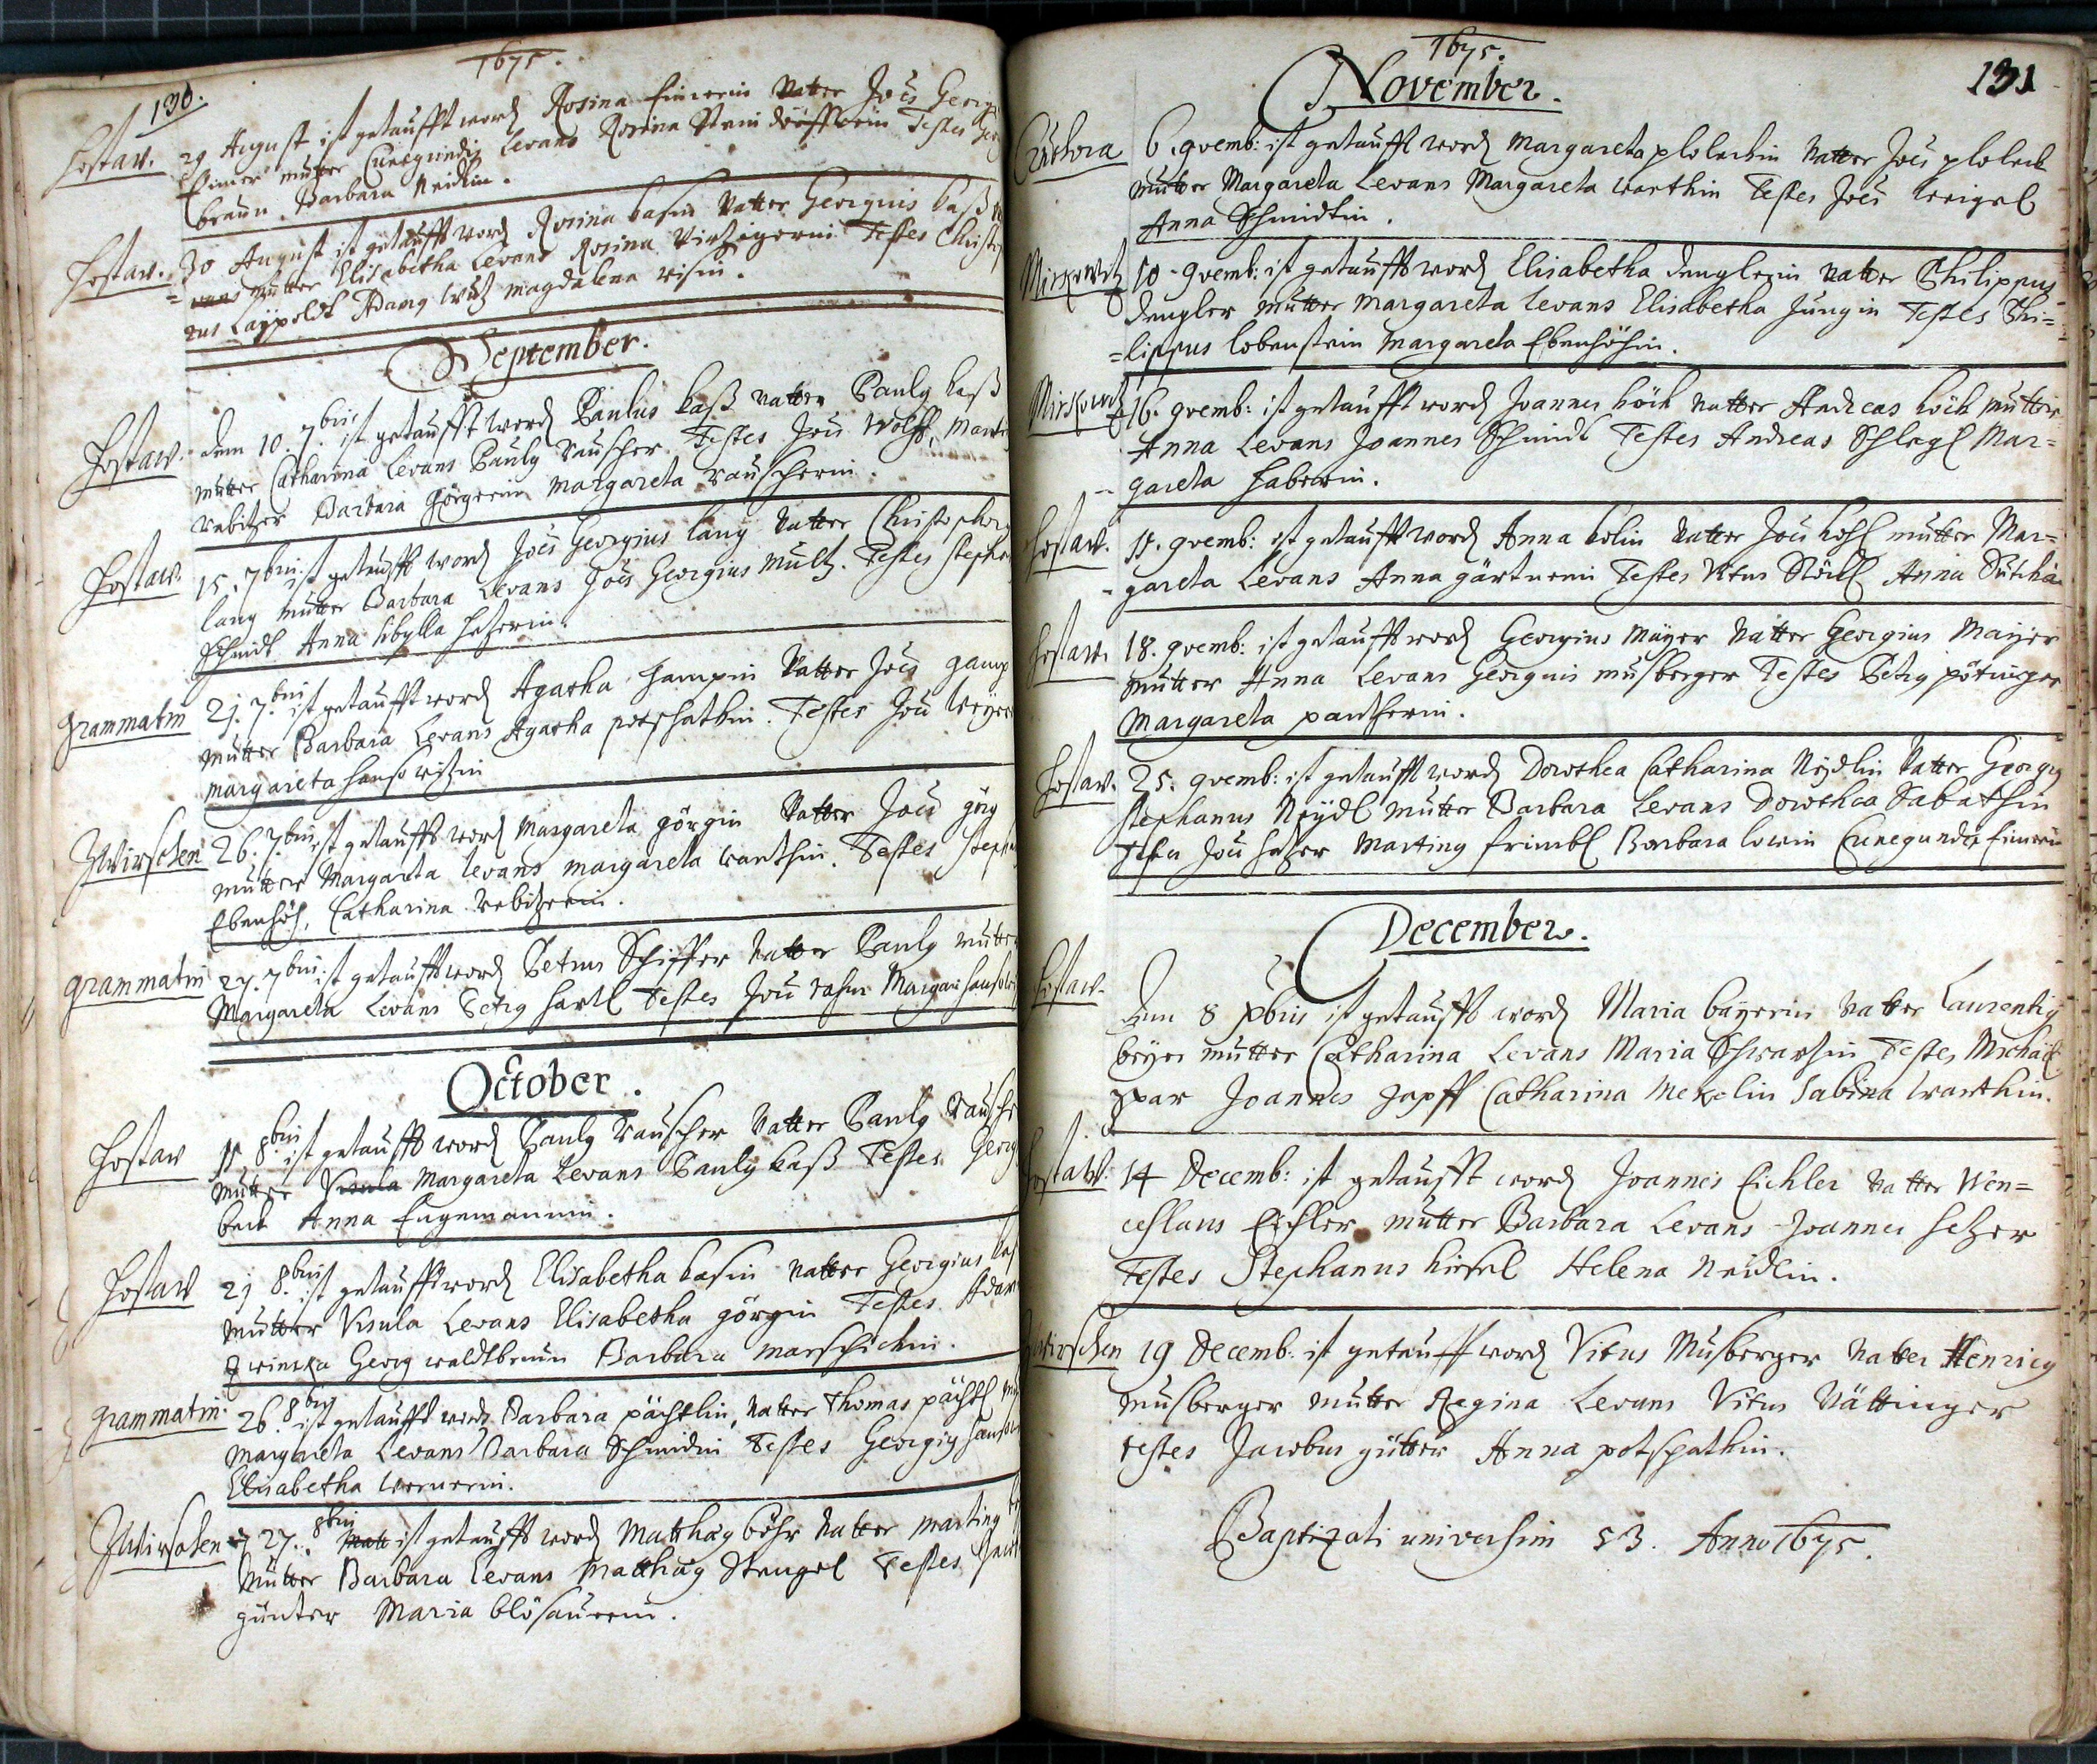 1675.
130.
Hostaw. 29 August ist getaufft word Rosina Eimerin Vatter Joes Georg
Eimer mutter Cunegundis Levans Rosina Steindörfferin Testes
braun. Barbara Neidlin.
Hostaw. 30 August ist getaufft word Rosina kasin Vatter Georgius kaß
mutter Elisabetha Levans Rosina Testes Christo
rus Laypoldt Adamg wutz magdalena
September.
Hostaw. dem 10. 7bris ist getaufft word Paulus kaß vatter Paulg kaß
mutter Catharina Levans Paulg Rauscher. Testes Joes Wolff, Mart
Rebitzer Barbara Görgerin Margareta Rauscherin.
Hostaw. 15. 7bris ist getaufft word Joes Georgius lang Vatter Christophorg
lang mutter Barbara Levans Joes Georgius Multz. Testes Stepha
Schmidt Anna Sibylla Hetzerin.
grammatin 21. 7bris ist getaufft word Agatha Hampin Vatter Joes gamp
mutter Barbara Levans Agatha potschathin. Testes Joes
margareta Hansowitzin
Zwirschen 26. 7bris ist getaufft word Margareta görgin Vatter Joes görg
mutter Margareta Levans margareta warthin. Testes Steph
Ebenhöh, Catharina Rebitzerin.
grammatin 27. 7bris ist getaufft word Petrus Schiffer Vatter Paulg mutter
Margareta Levans Petrg hartl Testes Joes
October.
Hostaw 11 8bris ist getaufft word Paulg Rauscher Vatter Paulg Rausche
mutter Ursula Margareta Levans Paulg kaß Testes Georg
beck Anna Engemannin.
Hostaw 21 8bris ist getaufft word Elisabetha kasin Vatter Georgius kas
mutter Ursula Levans Elisabetha görgin Testes Adam
Georg waldtbrun Barbara Marschickin.
grammatin 26. 8bris ist getaufft word Barbara pächtlin, Vatter Thomas pächtl
Margareta Levans Barbara Schmidin Testes Georgig
Elisabetha wernerin.
Zwirschen 27. 8bris Matt ist getaufft word Matthäg böhr Vatter Marting
mutter Barbara Levans Matthäg Stengel Testes Jacob
günter Maria blösaurin.
1675.
November.
131
6. 9vemb: ist getaufft word Margareta plolechin Vatter Joes plolech
mutter Margareta Levans Margareta warthin Testes Joes weigel
Anna Schmidtin.
Mirkowitz 10. 9vemb: ist getaufft word Elisabetha denglerin Vatter Philippus
dengler mutter Margareta Levans Elisabetha Jungin Testes Phi=
=lippus lobenstein Margareta Ebenhöhin.
Mirkowitz 16. 9vemb: ist getaufft word Joannes höck Vatter Andreas höck mutter
Anna Levans Joannes Schmidt Testes Andreas Schlegl Mar=
-gareta Haberin.
Hostaw. 11. 9vemb: ist getaufft word Anna kolin Vatter Joes kohl mutter Mar=
-gareta Levans Anna gärtnerin Testes Vitus Anna
Hostaw. 18. 9vemb: ist getaufft word Georgius Mayer Vatter Georgius Mayer
mutter Anna Levans Georgius musberger Testes Petrg pötinger
Margareta pantherin.
Hostaw. 25. 9vemb: ist getaufft word Dorothea Catharina Neydlin Vatter Georgig
Stephanus Neydl mutter Barbara Levans Dorothea Sabathin
Testes Joes Hetzer Marting frimbl Barbara lowin Cunegundis Eimerin
December.
Hostaw. dem 8 Xbris ist getaufft word Maria bayerin Vatter Laurentig
beyer mutter Catharina Levans Maria Schwartzin Testes Michael
Joannes Zapff Catharina Sabina warthin.
Hostaw. 14 Decemb: ist getaufft word Joannes Eichler Vatter Wen=
ceslaus Eichler mutter Barbara Levans Joannes Hetzer
Testes Stephanus Helena Neidlin.
Zwirschen 19 Decemb: ist getaufft word Vitus Musberger Vatter Henricg
musberger mutter Regina Levans Vitus Nättinger
testes Jacobus gütter Anna potschathin.
Baptizati universim 53. Anno 1675.